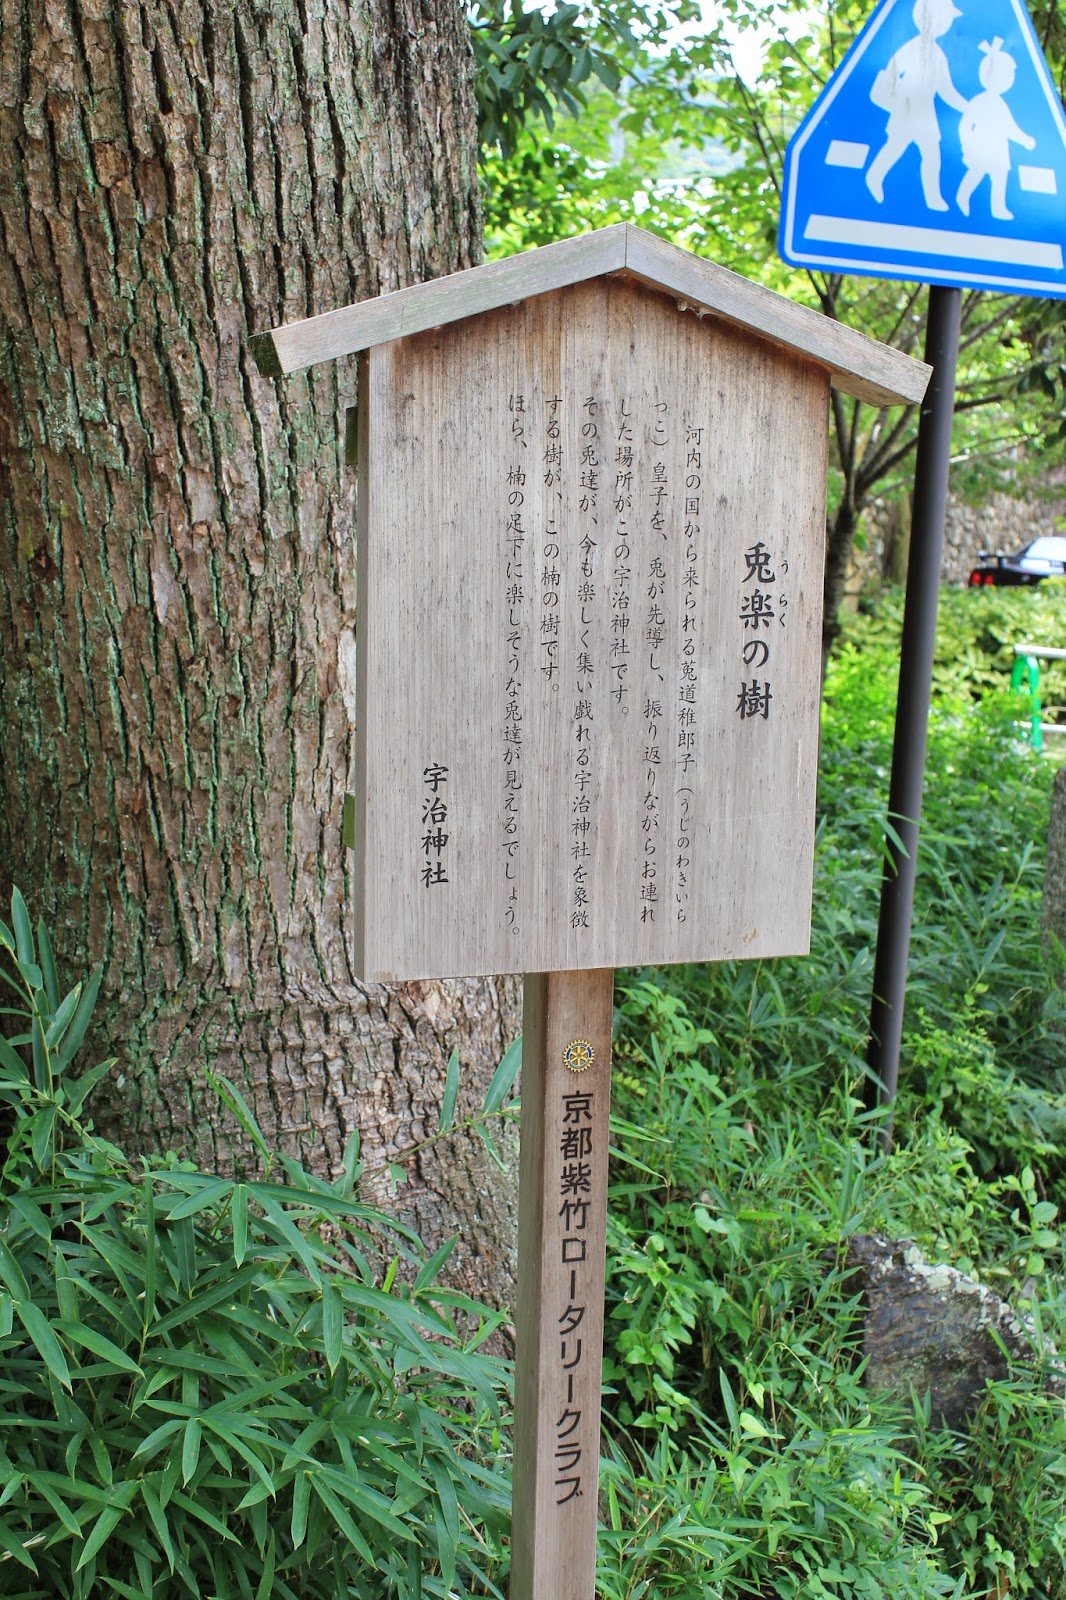 兎楽の樹
うらく
河内の国から来られる菟道稚郎子(うじのわきいら
っこ)皇子を、兎が先導し、振り返りながらお連れ
した場所がこの宇治神社です。
その兎達が、今も楽しく集い戯れる宇治神社を象徴
する樹が、この楠の樹です。
ほら、楠の足下に楽しそうな兎達が見えるでしょう。
宇治神社
京都紫竹ロータリークラブ